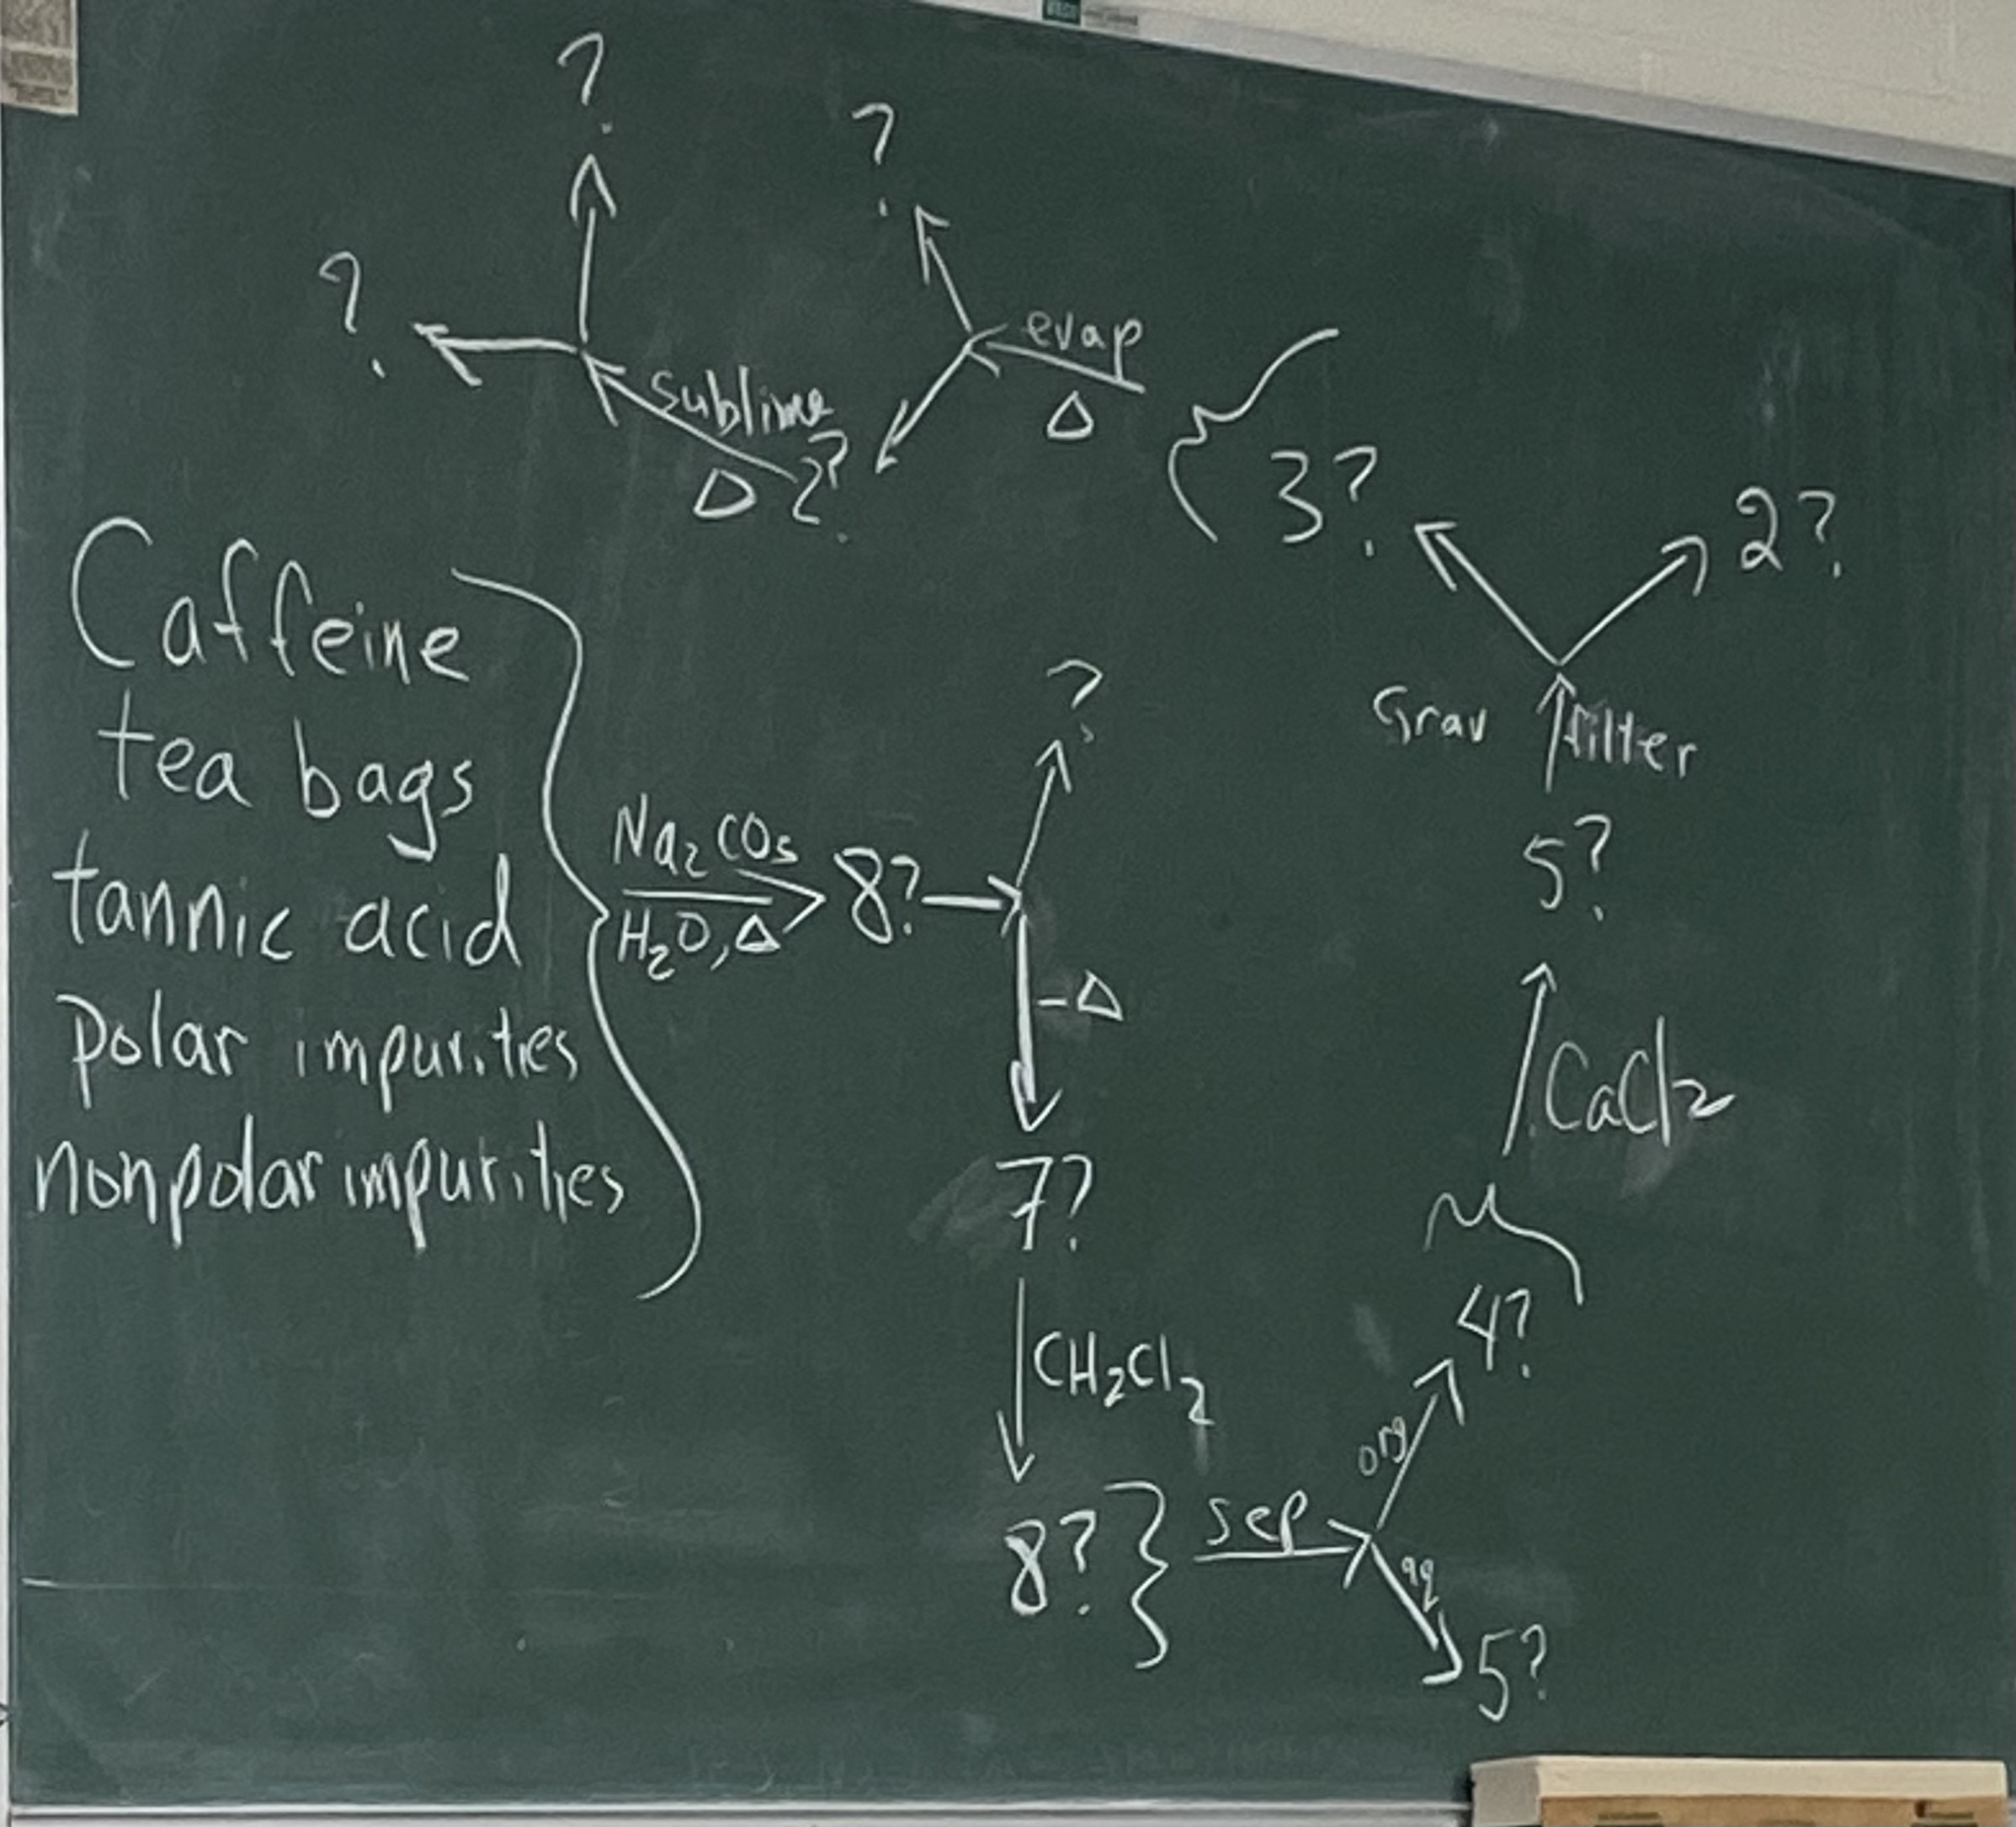 ?
?
?
evap
Δ
sublime
Δ
2?
3?
2?
Grav filter
5?
CaCl2
Caffeine
tea bags
tannic acid
Polar impurities
nonpolar impurities
Na2CO3
H2O, Δ
8?
?
-Δ
7?
CH2Cl2
8?
sep
org
4?
aq
5?